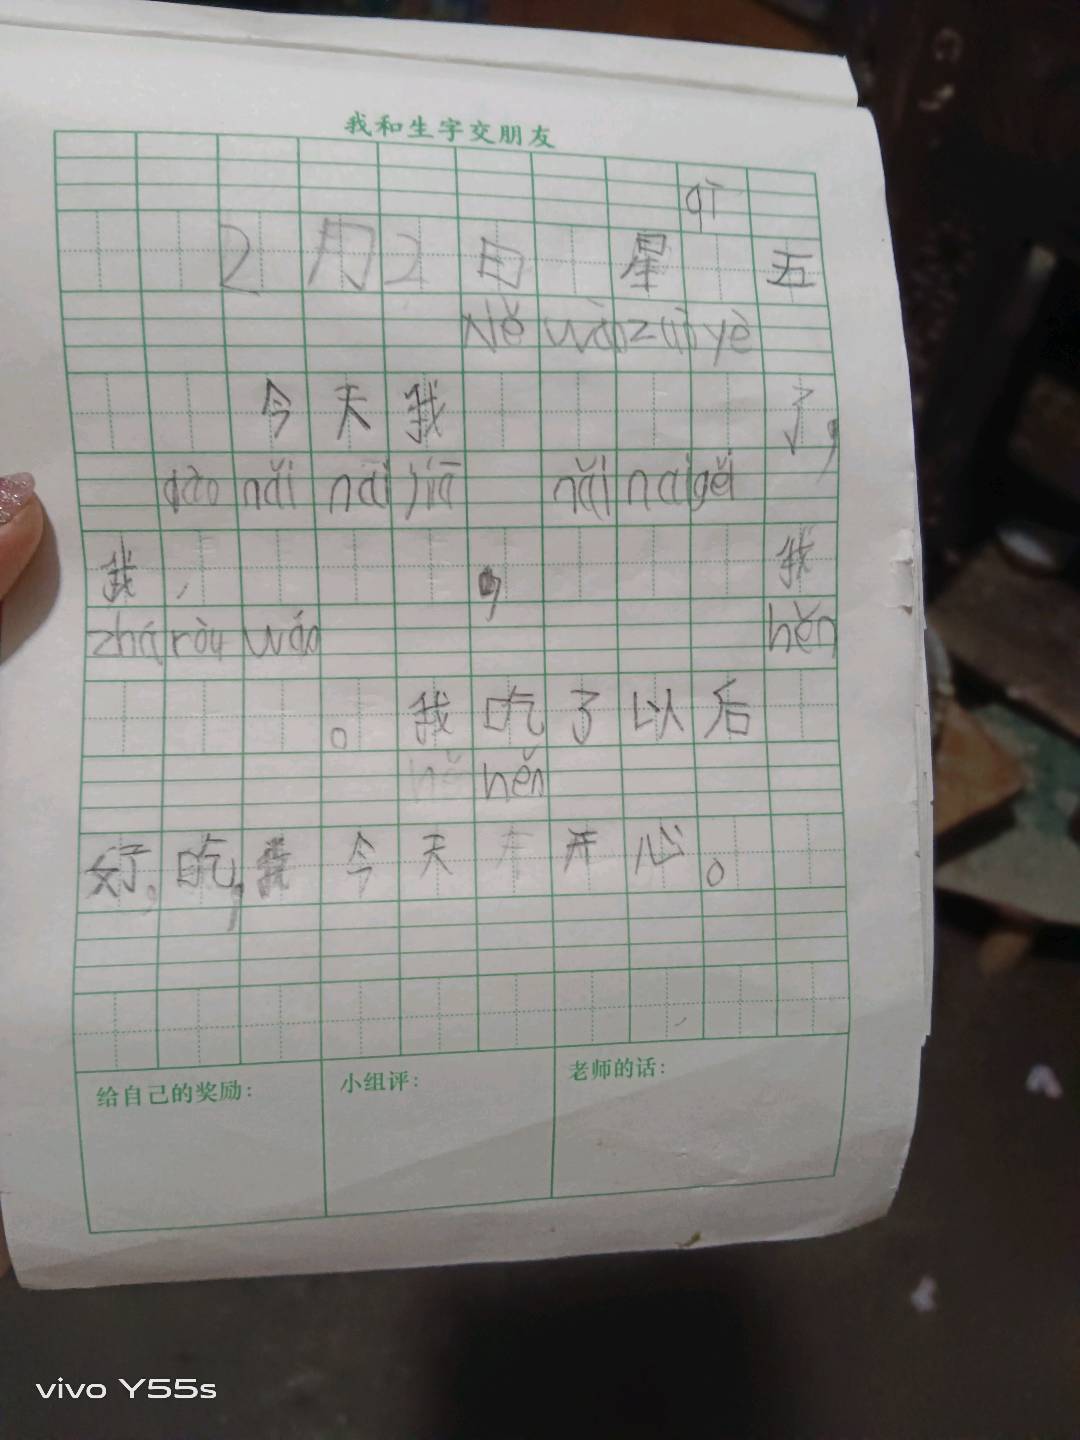 我和生字交朋友
qī
2月2日 星 五
xiě wán zuò yè
今天我 了，
dào nǎi nai jiā nǎi nai gěi
我 ， 我
zhá ròu wán hěn
。我吃了以后
hěn
好吃，我今天 开心。
给自己的奖励： 小组评： 老师的话：
vivo Y55s